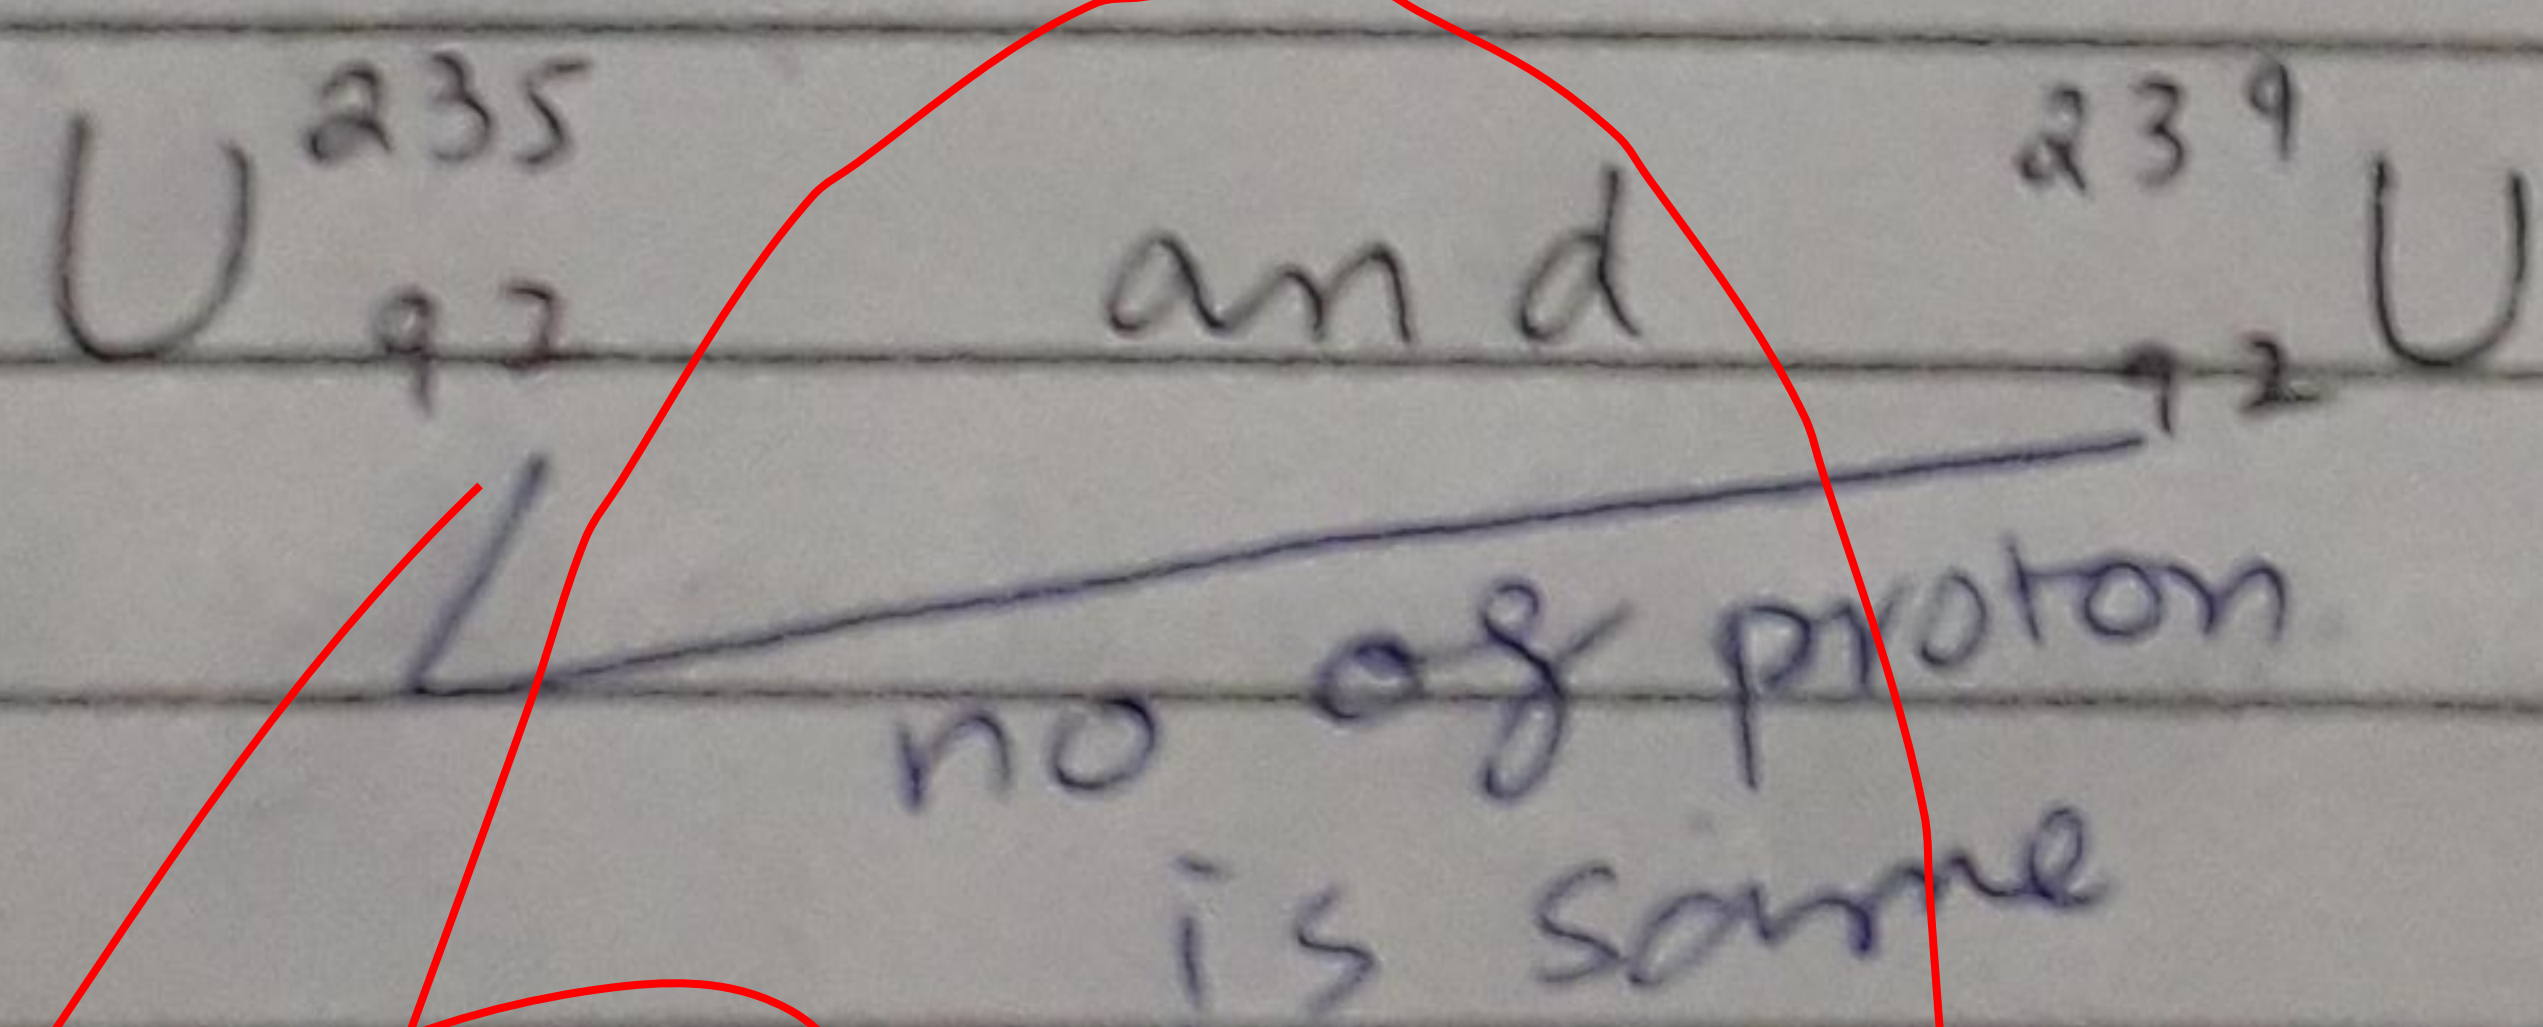 U 235 92 and 239 92 U
no of proton
is same